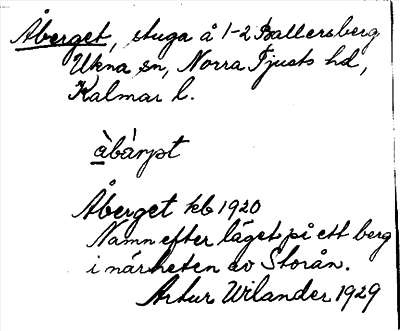 Åberget, stuga å 1-2 Ballersberg
Ukna sn, Norra Tjusts hd,
Kalmar l.
àbàrpt
Åberget kb 1920
Namn efter läget på ett berg
i närheten av Storån.
Artur Wilander 1929